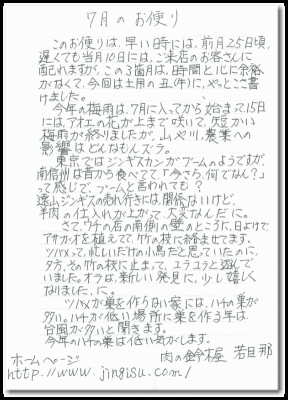 7月のお便り
このお便りは、早い時には、前月25日頃、
遅くても当月10日には、ご来店のお客さんに
配れますが、この3箇月は、時間と心に余裕
がなくて、今回は土用の丑(牛)に、やっとこ書
けました。
今年の梅雨は、7月に入ってから始まって、15日
には、アオエの花が上まで咲いて、短かい
梅雨が終りましたが、山や川、農業への
影響はどんなもんズラ。
東京ではジンギスカンがブームのようですが、
南信州は昔から食べてて「今さら、何でなん?」
って感じで、ブームと言われても?
遠山ジンギスの売れ行きには、関係ないけど、
羊肉の仕入れが上がって、大変なんだに。
さて、ワケの店の南側の壁のところに、日よけで
アサガオを植えてて、竹の枝に絡ませてます。
ツバメって、忙しいだけの小鳥だと思っていたのに、
夕方、その竹の枝に止まって、ユラユラと遊んで
いました。オラは、新しい発見に、少し嬉しく
なりました、に。
ツバメが巣を作らない家には、ハチの巣が
多い。ハチが低い場所に巣を作る年は、
台風が多いと聞きます。
今年のハチの巣は低い気がします。
ホームページ 肉の鈴木屋 若旦那
http://www.jingisu.com/